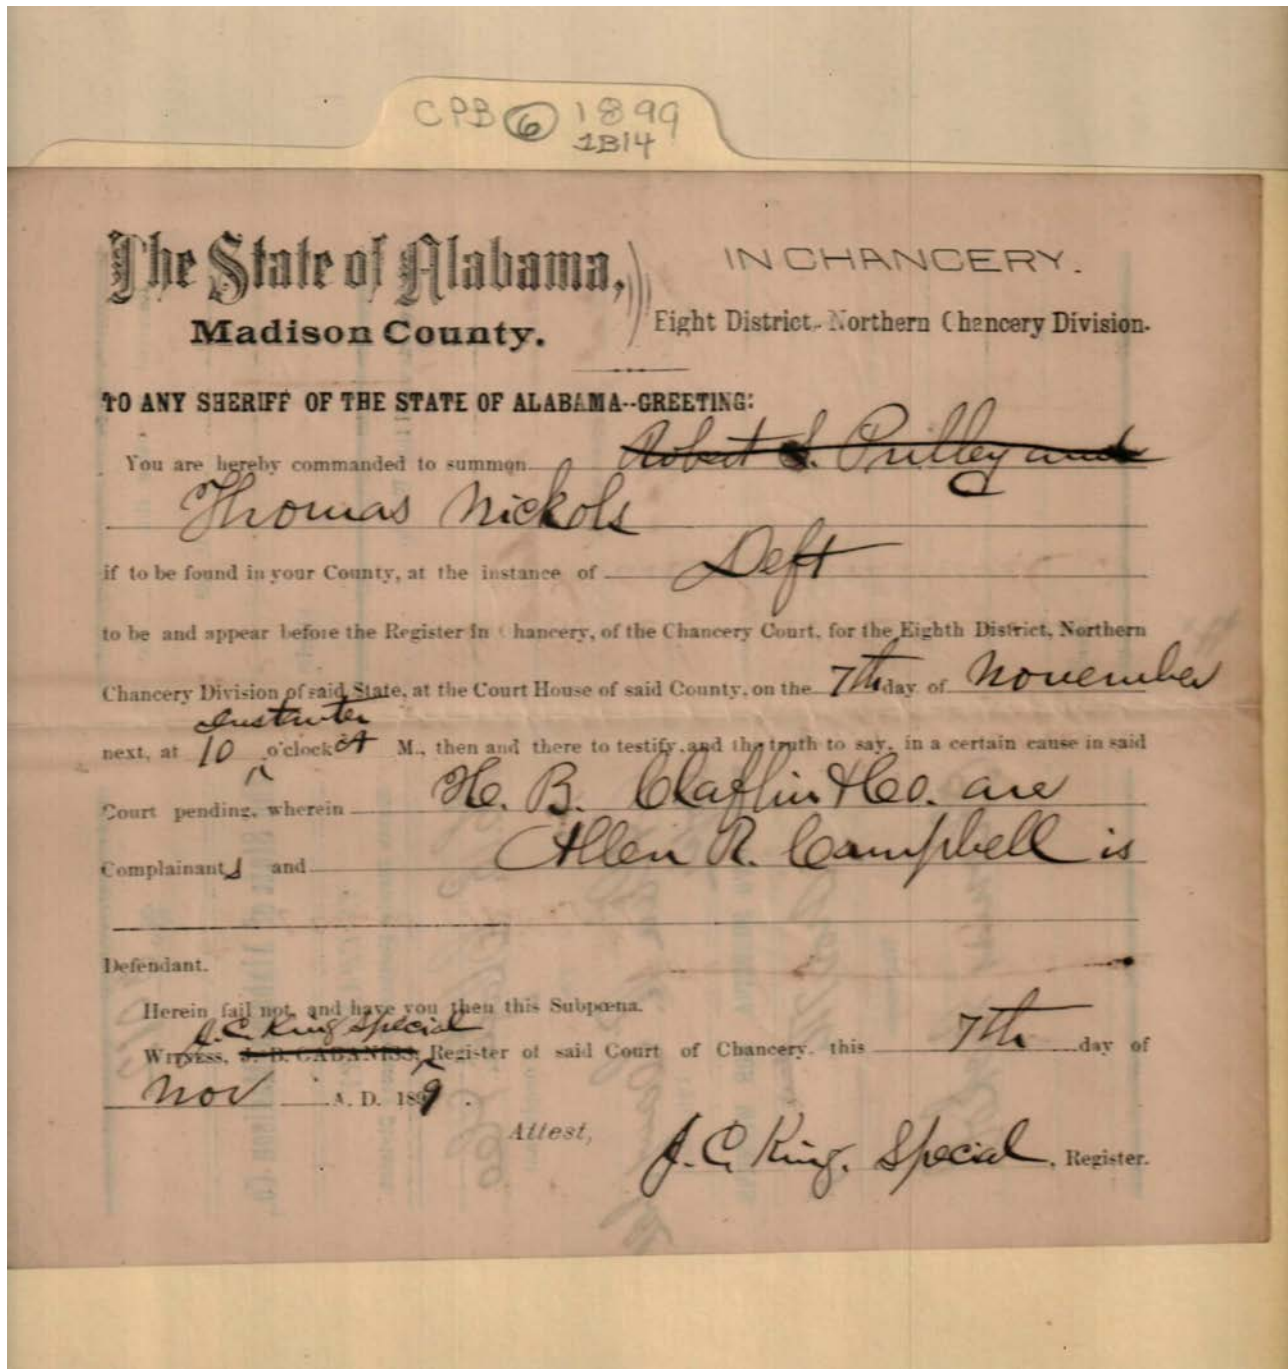 CPB 6 1899
1B14
The State of Alabama,
Madison County.
IN CHANCERY.
Eight District, Northern Chancery Division.
TO ANY SHERIFF OF THE STATE OF ALABAMA--GREETING:
You are hereby commanded to summon Robert S. and
Thomas Nickols
if to be found in your County, at the instance of Deft
to be and appear before the Register in Chancery, of the Chancery Court, for the Eighth District, Northern
Chancery Division of said State, at the Court House of said County, on the 7th day of November
Instanter
next, at 10 o'clock A M., then and there to testify, and the truth to say, in a certain cause in said
Court pending, wherein H. B. Claflin & Co. are
Complainants and Allen R. Campbell is
Defendant.
Herein fail not, and have you then this Subpœna.
J. C. King Special
Witness, J. D. CABANISS, Register of said Court of Chancery, this 7th day of
Nov A. D. 1899.
Attest,
J. C. King, Special, Register.